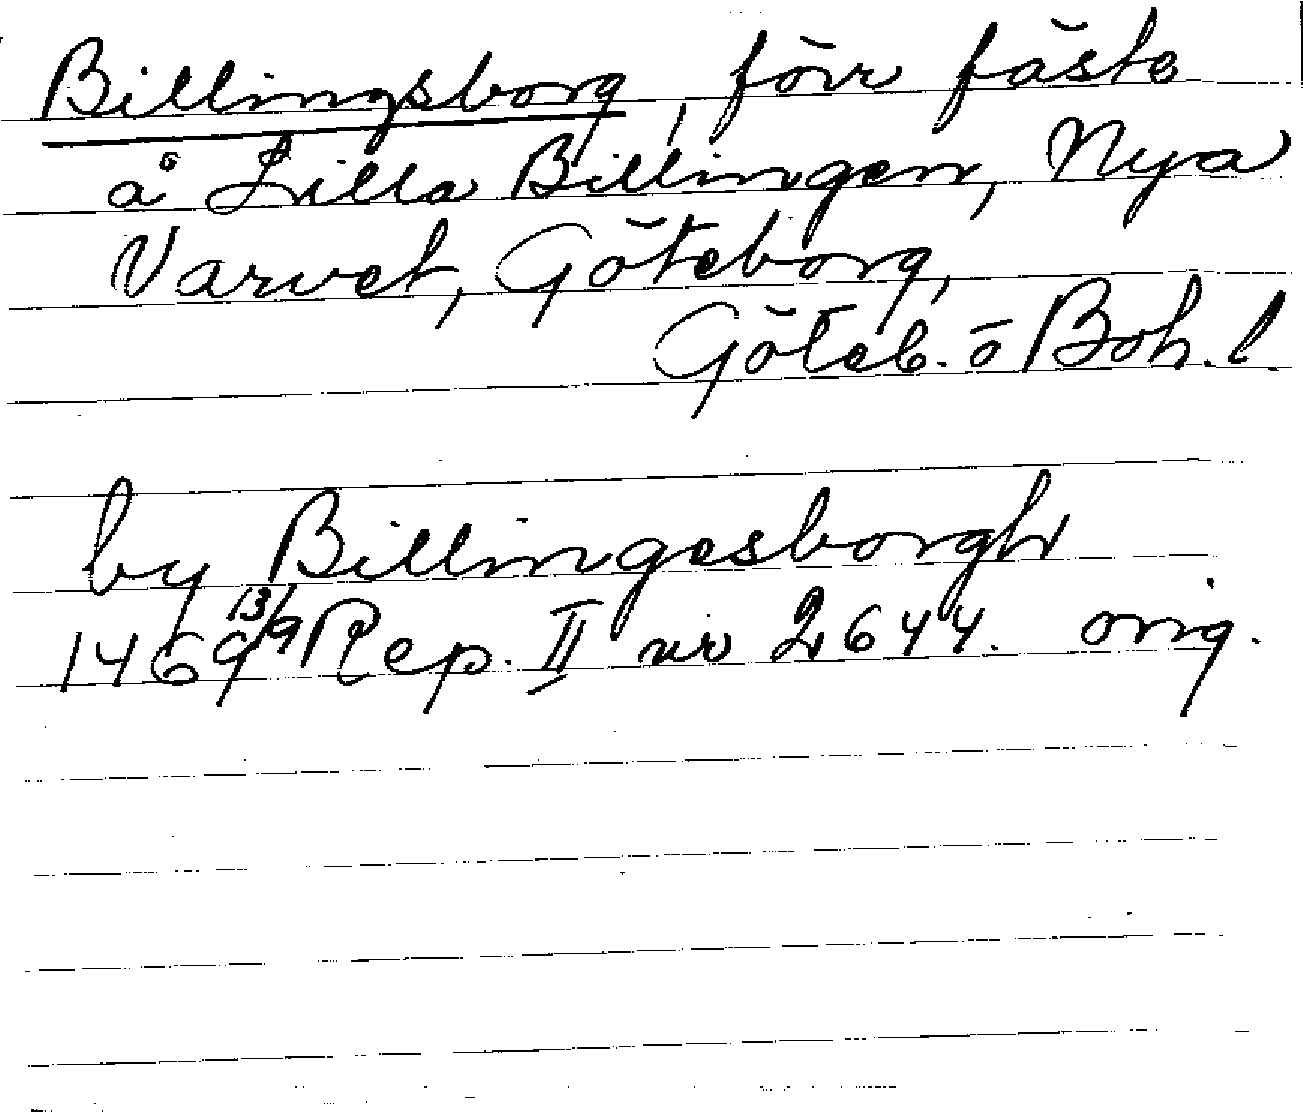 Billingsborg, förr fäste
å Lilla Billingen, Nya
Varvet, Göteborg,
Göteb. o Boh. l.
by Billingesborgh
1469 13/9 Rep. II nr 2644. orig.